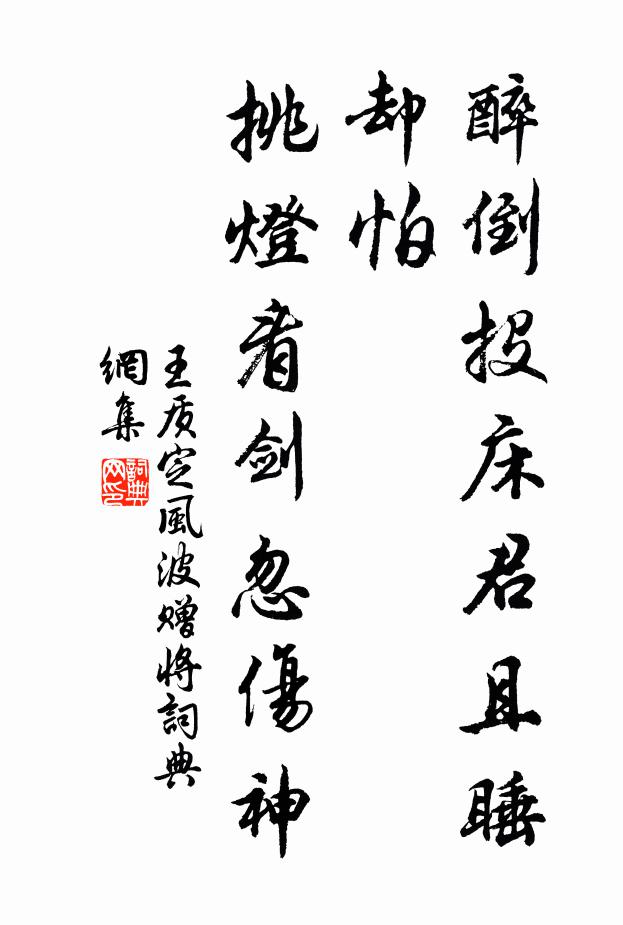 醉倒投床君且睡
却怕
挑燈看剑忽傷神
王质定風波赠将詞典
網集
詞典
网印